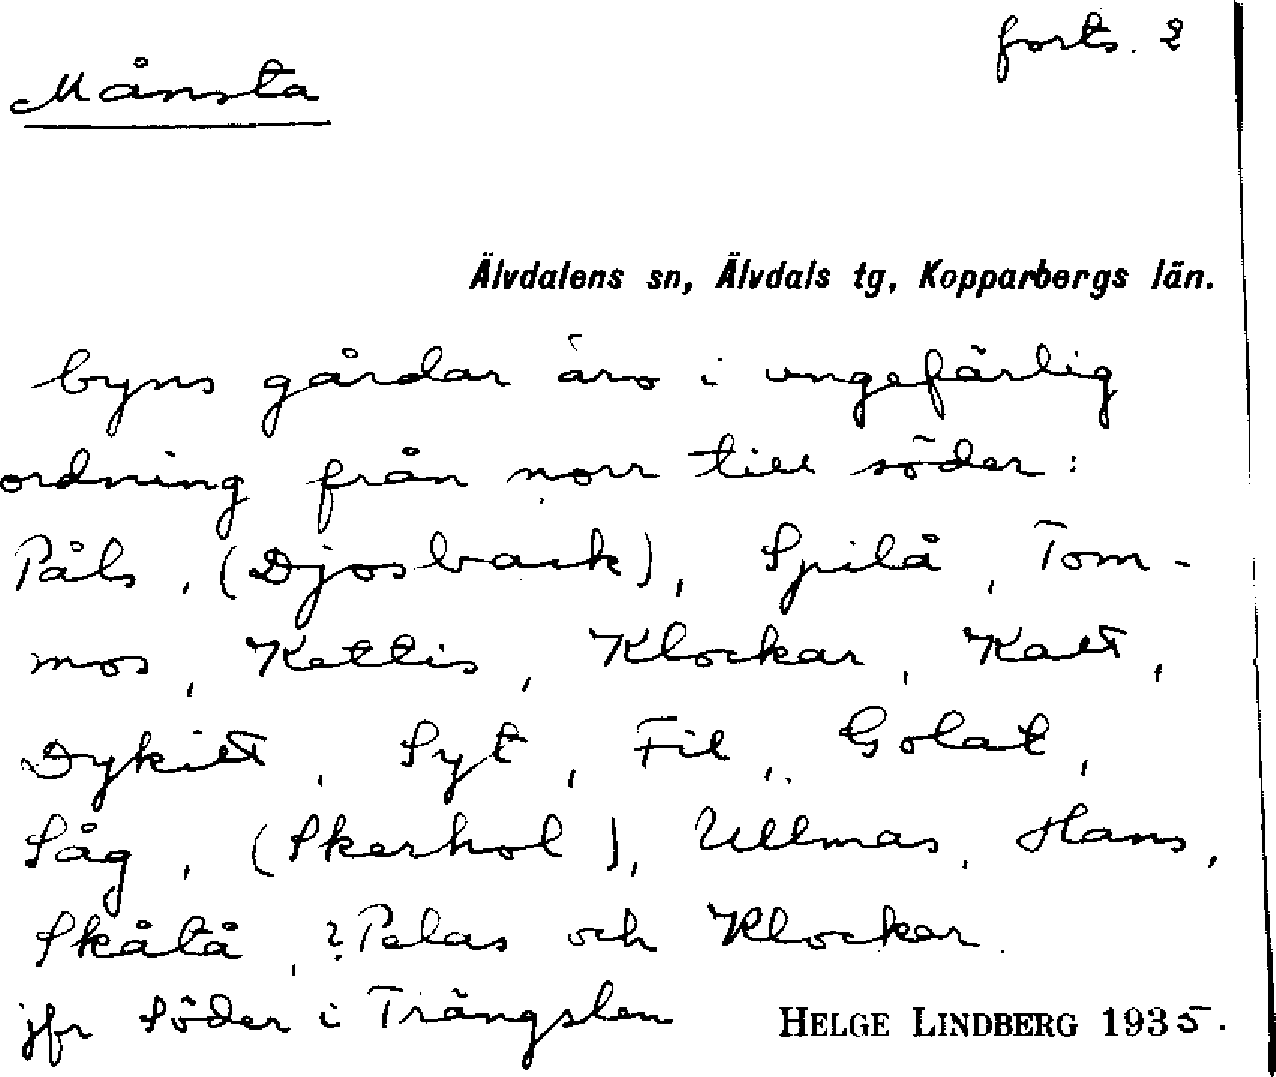 forts. 2
Månsta
Älvdalens sn, Älvdals tg, Kopparbergs län.
byns gårdar äro i ungefärlig
ordning från norr till söder:
Påls, (Djosback), Spilå, Tom-
mos, Kettis, Klockar, Katt,
Dykilt, Syt, Fil, Golat,
Såg, (Skerhol), Ullmas, Hans,
Skålå, ? Pelas och Klockar.
jfr Söder i Trängslen
HELGE LINDBERG 1935.